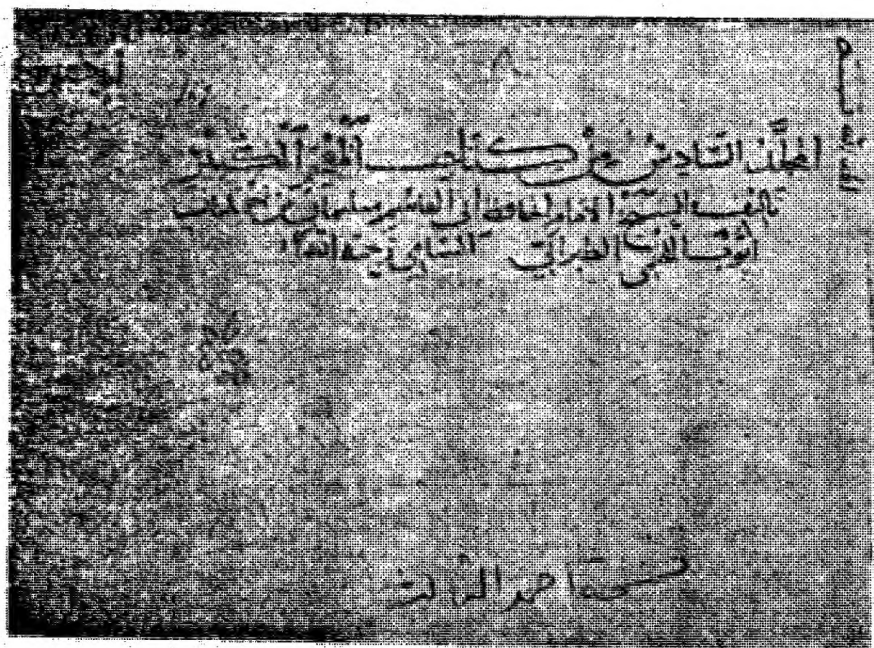 الحمد لله
المجلد السادس من كتاب المعجم الكبير
تأليف الشيخ الامام الحافظ أبي القاسم سليمان بن احمد بن
أيوب اللخمي الطبراني الشامي رحمه الله
نسخة احمد الثالث